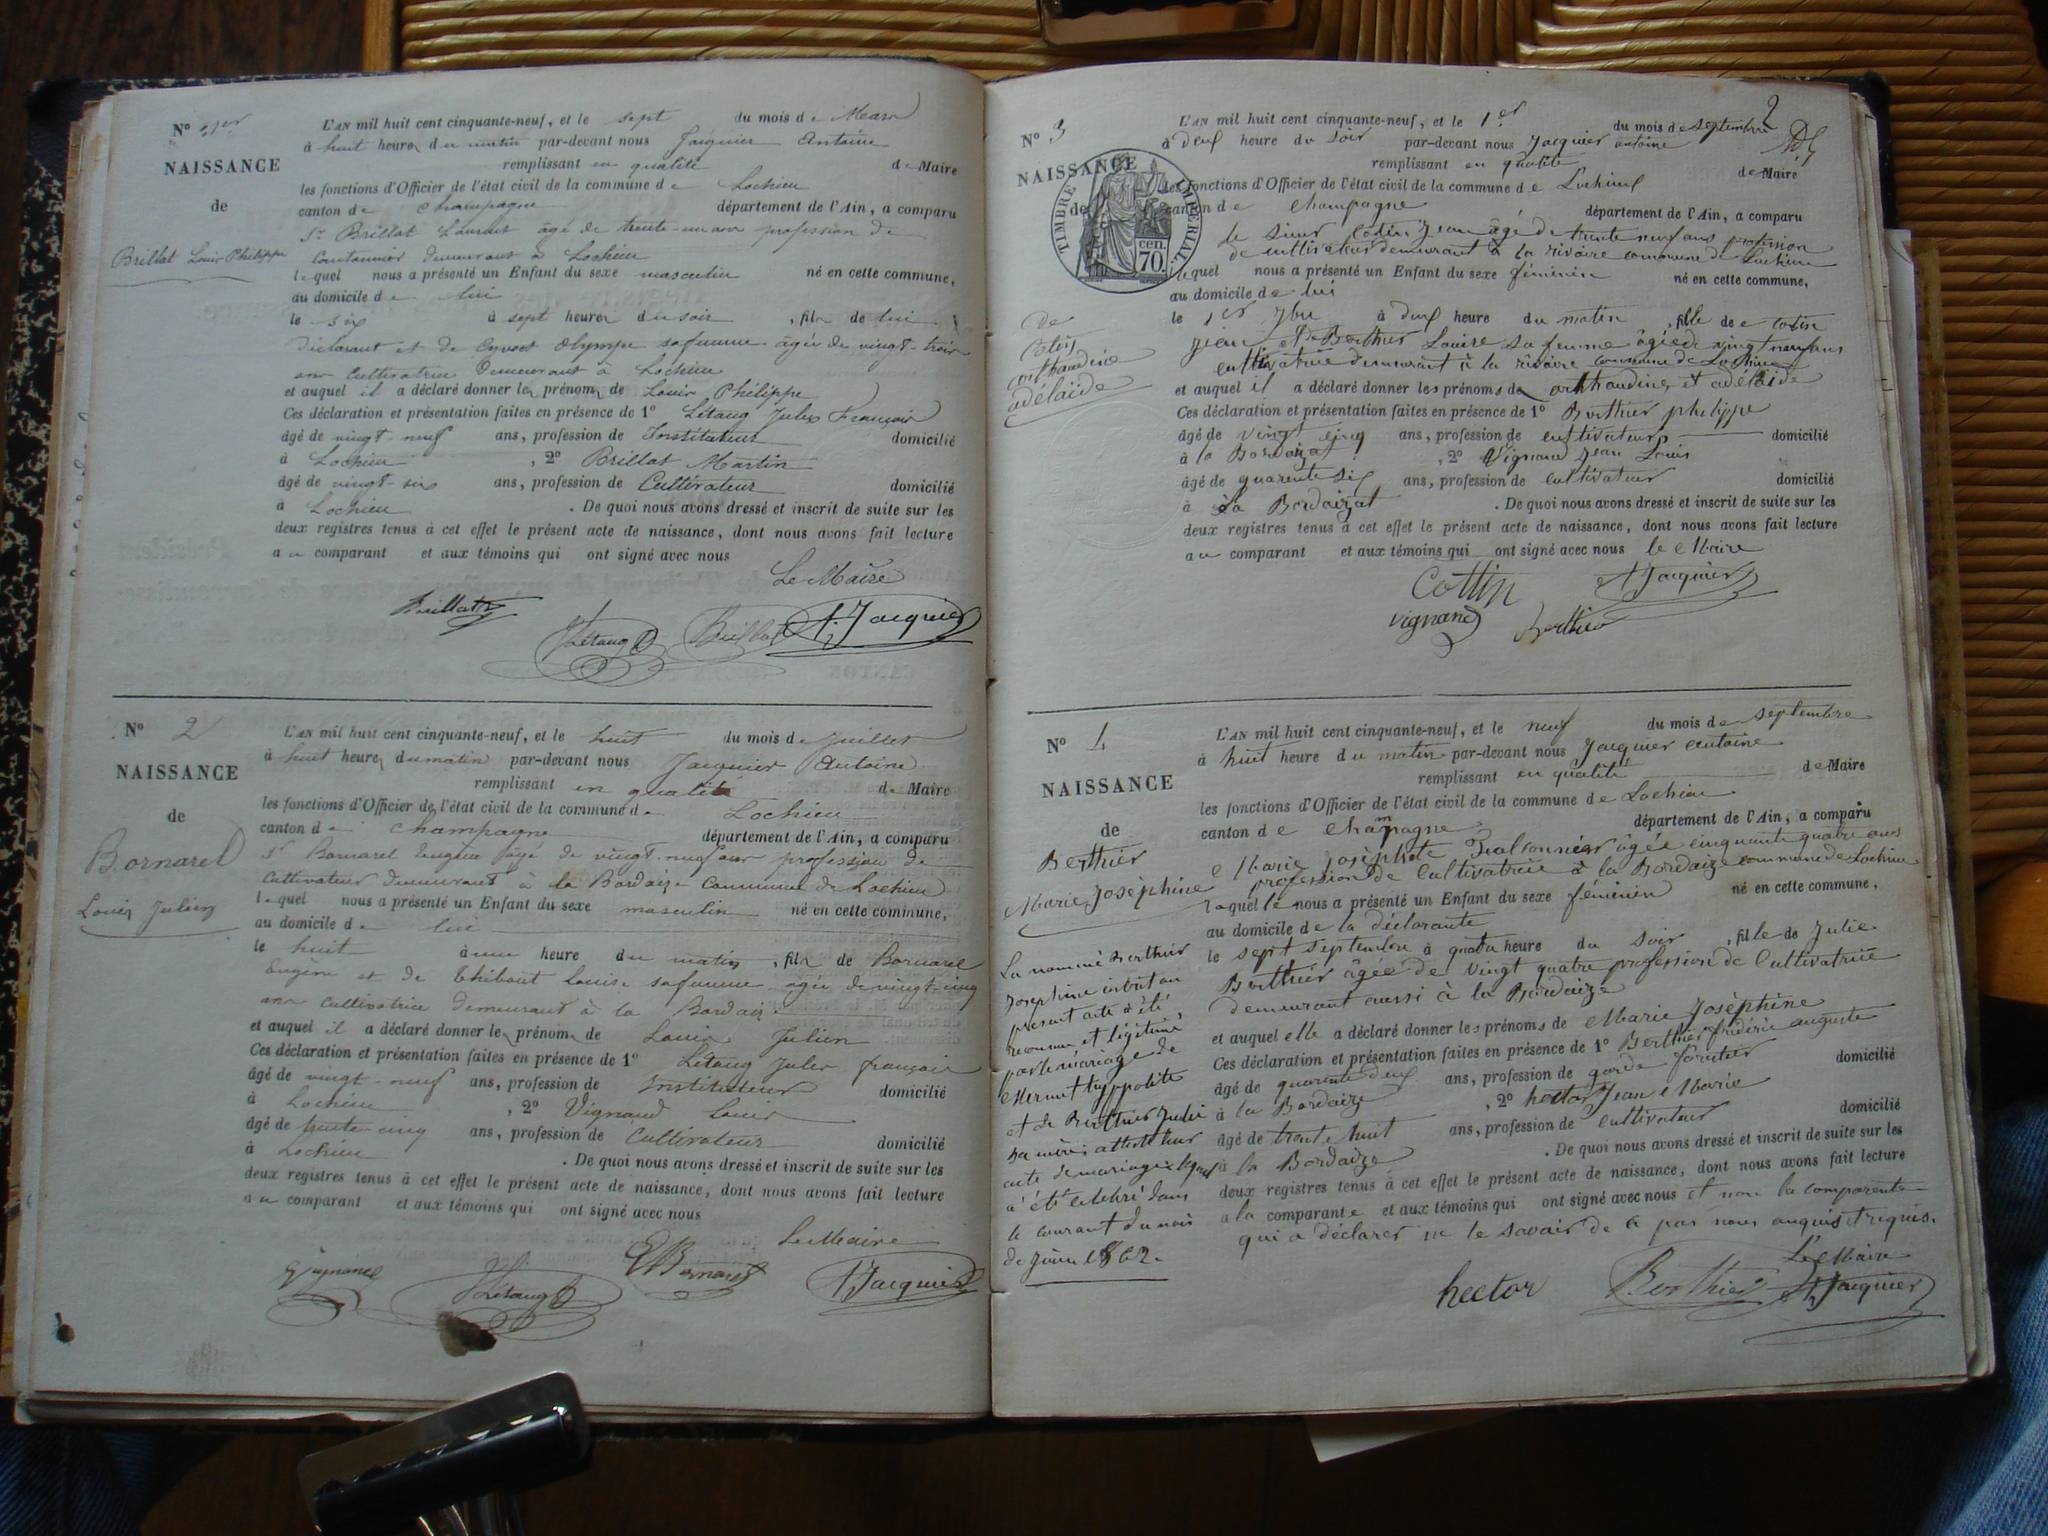 N° 1er
NAISSANCE
de
Brillat Louis Philippe
L'AN mil huit cent cinquante-neuf, et le sept du mois de Mars
à huit heures du matin par-devant nous Jacquier Antoine
remplissant en qualité de Maire
les fonctions d'Officier de l'état civil de la commune de Lochieu
canton de Champagne département de l'Ain, a comparu
Sr Brillat Laurent âgé de trente-un ans profession de
cantonnier demeurant à Lochieu
lequel nous a présenté un Enfant du sexe masculin né en cette commune,
au domicile de lui
le six à sept heures du soir, fils de lui
déclarant et de Cyvoct Olympe sa femme âgée de vingt-trois
ans cultivatrice demeurant à Lochieu
et auquel il a déclaré donner les prénoms de Louis Philippe
Ces déclaration et présentation faites en présence de 1° Létang Jules François
âgé de vingt-neuf ans, profession de Instituteur domicilié
à Lochieu, 2° Brillat Martin
âgé de vingt-six ans, profession de Cultivateur domicilié
à Lochieu. De quoi nous avons dressé et inscrit de suite sur les
deux registres tenus à cet effet le présent acte de naissance, dont nous avons fait lecture
au comparant et aux témoins qui ont signé avec nous
Le Maire
Brillat
JLétang Brillat A. Jacquier
N° 2
NAISSANCE
de
Bornarel
Louis Julien
L'AN mil huit cent cinquante-neuf, et le huit du mois de Juillet
à huit heures du matin par-devant nous Jacquier Antoine
remplissant en qualité de Maire
les fonctions d'Officier de l'état civil de la commune de Lochieu
canton de Champagne département de l'Ain, a comparu
Sr Bornarel Eugène âgé de vingt-neuf ans profession de
cultivateur demeurant à la Bordaize commune de Lochieu
lequel nous a présenté un Enfant du sexe masculin né en cette commune,
au domicile de lui
le huit à une heure du matin, fils de Bornarel
Eugène et de Thébout Louise sa femme âgée de vingt-cinq
ans cultivatrice demeurant à la Bordaize
et auquel il a déclaré donner les prénoms de Louis Julien
Ces déclaration et présentation faites en présence de 1° Létang Jules françois
âgé de vingt-neuf ans, profession de Instituteur domicilié
à Lochieu, 2° Vignand Louis
âgé de trente-cinq ans, profession de Cultivateur domicilié
à Lochieu. De quoi nous avons dressé et inscrit de suite sur les
deux registres tenus à cet effet le présent acte de naissance, dont nous avons fait lecture
au comparant et aux témoins qui ont signé avec nous
Le Maire
Vignand JLétang EBornarel A. Jacquier
2
N° 3
NAISSANCE
de
TIMBRE IMPÉRIAL
70 cen.
de
Cotin
anthaudine
adélaïde
L'AN mil huit cent cinquante-neuf, et le 1er du mois de septembre
à deux heure du soir par-devant nous Jacquier antoine
remplissant en qualité de Maire
les fonctions d'Officier de l'état civil de la commune de Lochieu
canton de Champagne département de l'Ain, a comparu
le sieur Cotin Jean âgé de trente neuf ans profession
de cultivateur demeurant à la rivoire commune de Lochieu
lequel nous a présenté un Enfant du sexe féminin né en cette commune,
au domicile de lui
le 1er 7bre à deux heure du matin, fille de Cotin
Jean et de Berthier Louise sa femme âgée de vingt neuf ans
cultivatrice demeurant à la rivoire commune de Lochieu
et auquel il a déclaré donner les prénoms de anthaudine et adélaïde
Ces déclaration et présentation faites en présence de 1° Berthier philippe
âgé de vingt cinq ans, profession de cultivateur domicilié
à la Bordaiza, 2° Vignand Jean Louis
âgé de quarente six ans, profession de cultivateur domicilié
à la Bordaizat. De quoi nous avons dressé et inscrit de suite sur les
deux registres tenus à cet effet le présent acte de naissance, dont nous avons fait lecture
au comparant et aux témoins qui ont signé avec nous le Maire
Cottin A. Jacquier
vignand Berthier
N° 4
NAISSANCE
de
Berthier
Marie Joséphine
La nommé Berthier
Josephine inscrit au
présent acte a été
reconnue et légitimé
par le mariage de
Mermet hyppolite
et de Berthier Julie
sa mère, attesté sur
acte de mariage lequel
a été célébré dans
le courant du mois
de Juin 1862.
L'AN mil huit cent cinquante-neuf, et le neuf du mois de septembre
à huit heure du matin par-devant nous Jacquier antoine
remplissant en qualité de Maire
les fonctions d'Officier de l'état civil de la commune de Lochieu
canton de Champagne département de l'Ain, a comparu
Marie Josephete âgée cinquante quatre ans
profession de Cultivatrice à la Bordaize commune de Lochieu
laquelle nous a présenté un Enfant du sexe féminin né en cette commune,
au domicile de la déclarante
le sept septembre à quatre heure du soir, fille de Julie
Berthier âgée de vingt quatre profession de Cultivatrice
demeurant aussi à la Bordaize
et auquel elle a déclaré donner les prénoms de Marie Joséphine
Ces déclaration et présentation faites en présence de 1° Berthier frédéric auguste
âgé de quarente deux ans, profession de garde forêtier domicilié
à la Bordaize, 2° hector Jean Marie
âgé de trente huit ans, profession de cultivateur domicilié
à la Bordaize. De quoi nous avons dressé et inscrit de suite sur les
deux registres tenus à cet effet le présent acte de naissance, dont nous avons fait lecture
a la comparante et aux témoins qui ont signé avec nous et non la comparente
qui a déclarer ne le savoir de ce par nous enquis et requis.
Le Maire
hector Berthier A. Jacquier